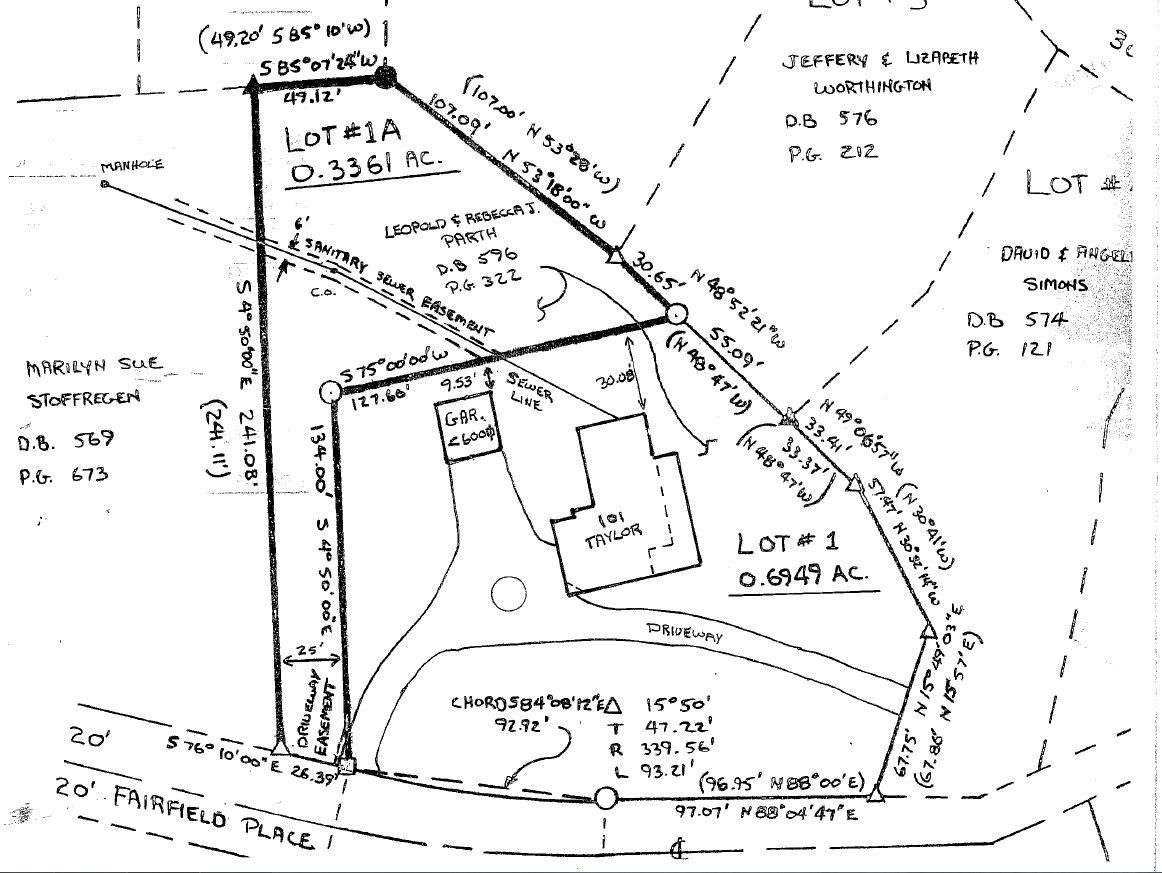 (49.20' S 85° 10' W)
S 85° 07' 24" W
49.12'
LOT #1A
0.3361 AC.
(107.00' N 53° 28' W)
107.09' N 53° 18' 00" W
JEFFERY & LIZABETH
WORTHINGTON
D.B 576
P.G. 212
LOT #
DAVID & ANGEL
SIMONS
D.B 574
P.G. 121
MANHOLE
LEOPOLD & REBECCA J.
PARTH
D.B 596
P.G. 322
6'
℄ SANITARY SEWER EASEMENT
C.O.
30.65'
N 48° 52' 21" W
55.09'
(N 48° 47' W)
MARILYN SUE
STOFFREGEN
D.B. 569
P.G. 673
S 4° 50' 00" E 241.08'
(241.11')
S 75° 00' 00" W
127.60'
9.53'
SEWER
LINE
30.08'
GAR.
<600ф
N 49° 06' 57" W
33.41'
33.37'
(N 48° 47' W)
134.00' S 4° 50' 00" E
101
TAYLOR
LOT # 1
0.6949 AC.
57.47' N 30° 32' 14" W
(N 30° 41' W)
DRIVEWAY
25'
DRIVEWAY
EASEMENT
CHORD S 84° 08' 12" E
92.92'
Δ 15° 50'
T 47.22'
R 339.56'
L 93.21'
67.75' N 15° 49' 03" E
(67.86' N 15° 57' E)
20'
S 76° 10' 00" E 26.39'
(96.95' N 88° 00' E)
97.07' N 88° 04' 47" E
20' FAIRFIELD PLACE
℄